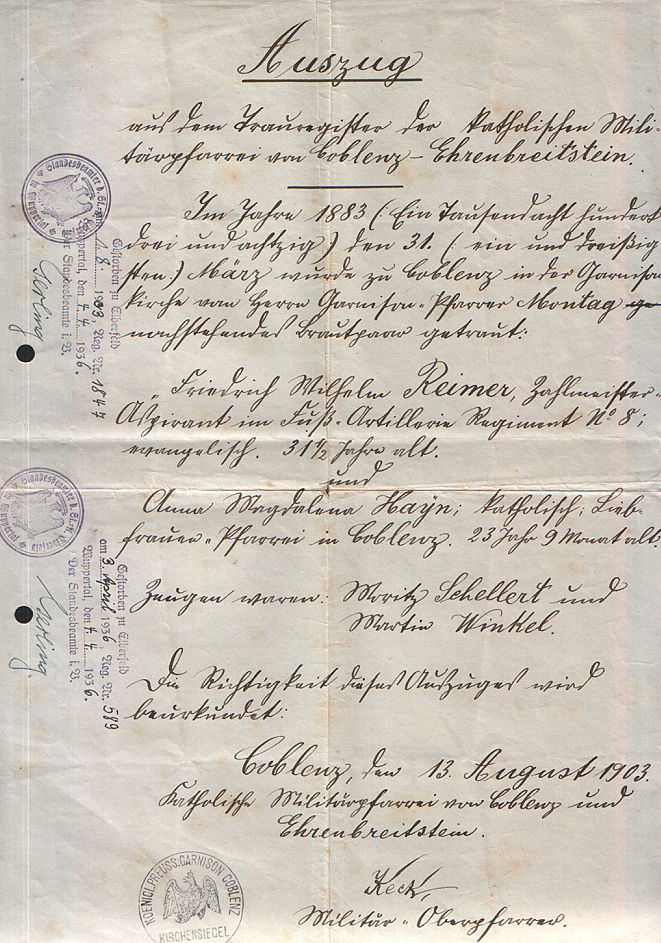 Auszug
aus dem Trauregister der katholischen Mili-
tärpfarrei von Coblenz-Ehrenbreitstein.
Im Jahre 1883 (Ein Tausend acht hundert
drei und achtzig) den 31. (ein und dreißig
sten) März wurde zu Coblenz in der Garnison
kirche vom Herrn Garnison-Pfarrer Montag
nachstehendes Brautpaar getraut:
Friedrich Wilhelm Reimer, Zahlmeister-
Aspirant im Fuß-Artillerie Regiment No 8;
evangelisch. 31 1/2 Jahre alt.
und
Anna Magdalena Hayn; katholisch; Lieb-
frauen-Pfarrei in Coblenz. 23 Jahr 9 Monat alt.
Zeugen waren: Moritz Schellert und
Martin Winkel.
Die Richtigkeit dieses Auszuges wird
beurkundet:
Coblenz, den 13. August 1903.
Katholische Militärpfarrei von Coblenz und
Ehrenbreitstein.
Keck,
Militär-Oberpfarrer.
KOENIGL.PREUSS.GARNISON COBLENZ
KIRCHENSIEGEL
Gestorben zu Elberfeld
Reg. Nr. 1844
Wuppertal, den 4. 4. 1936.
Der Standesbeamte i. V.
Gerling
Gestorben zu Elberfeld
am 3. April 1936, Reg. Nr. 589
Wuppertal, den 4. 4. 1936.
Der Standesbeamte i. V.
Gerling